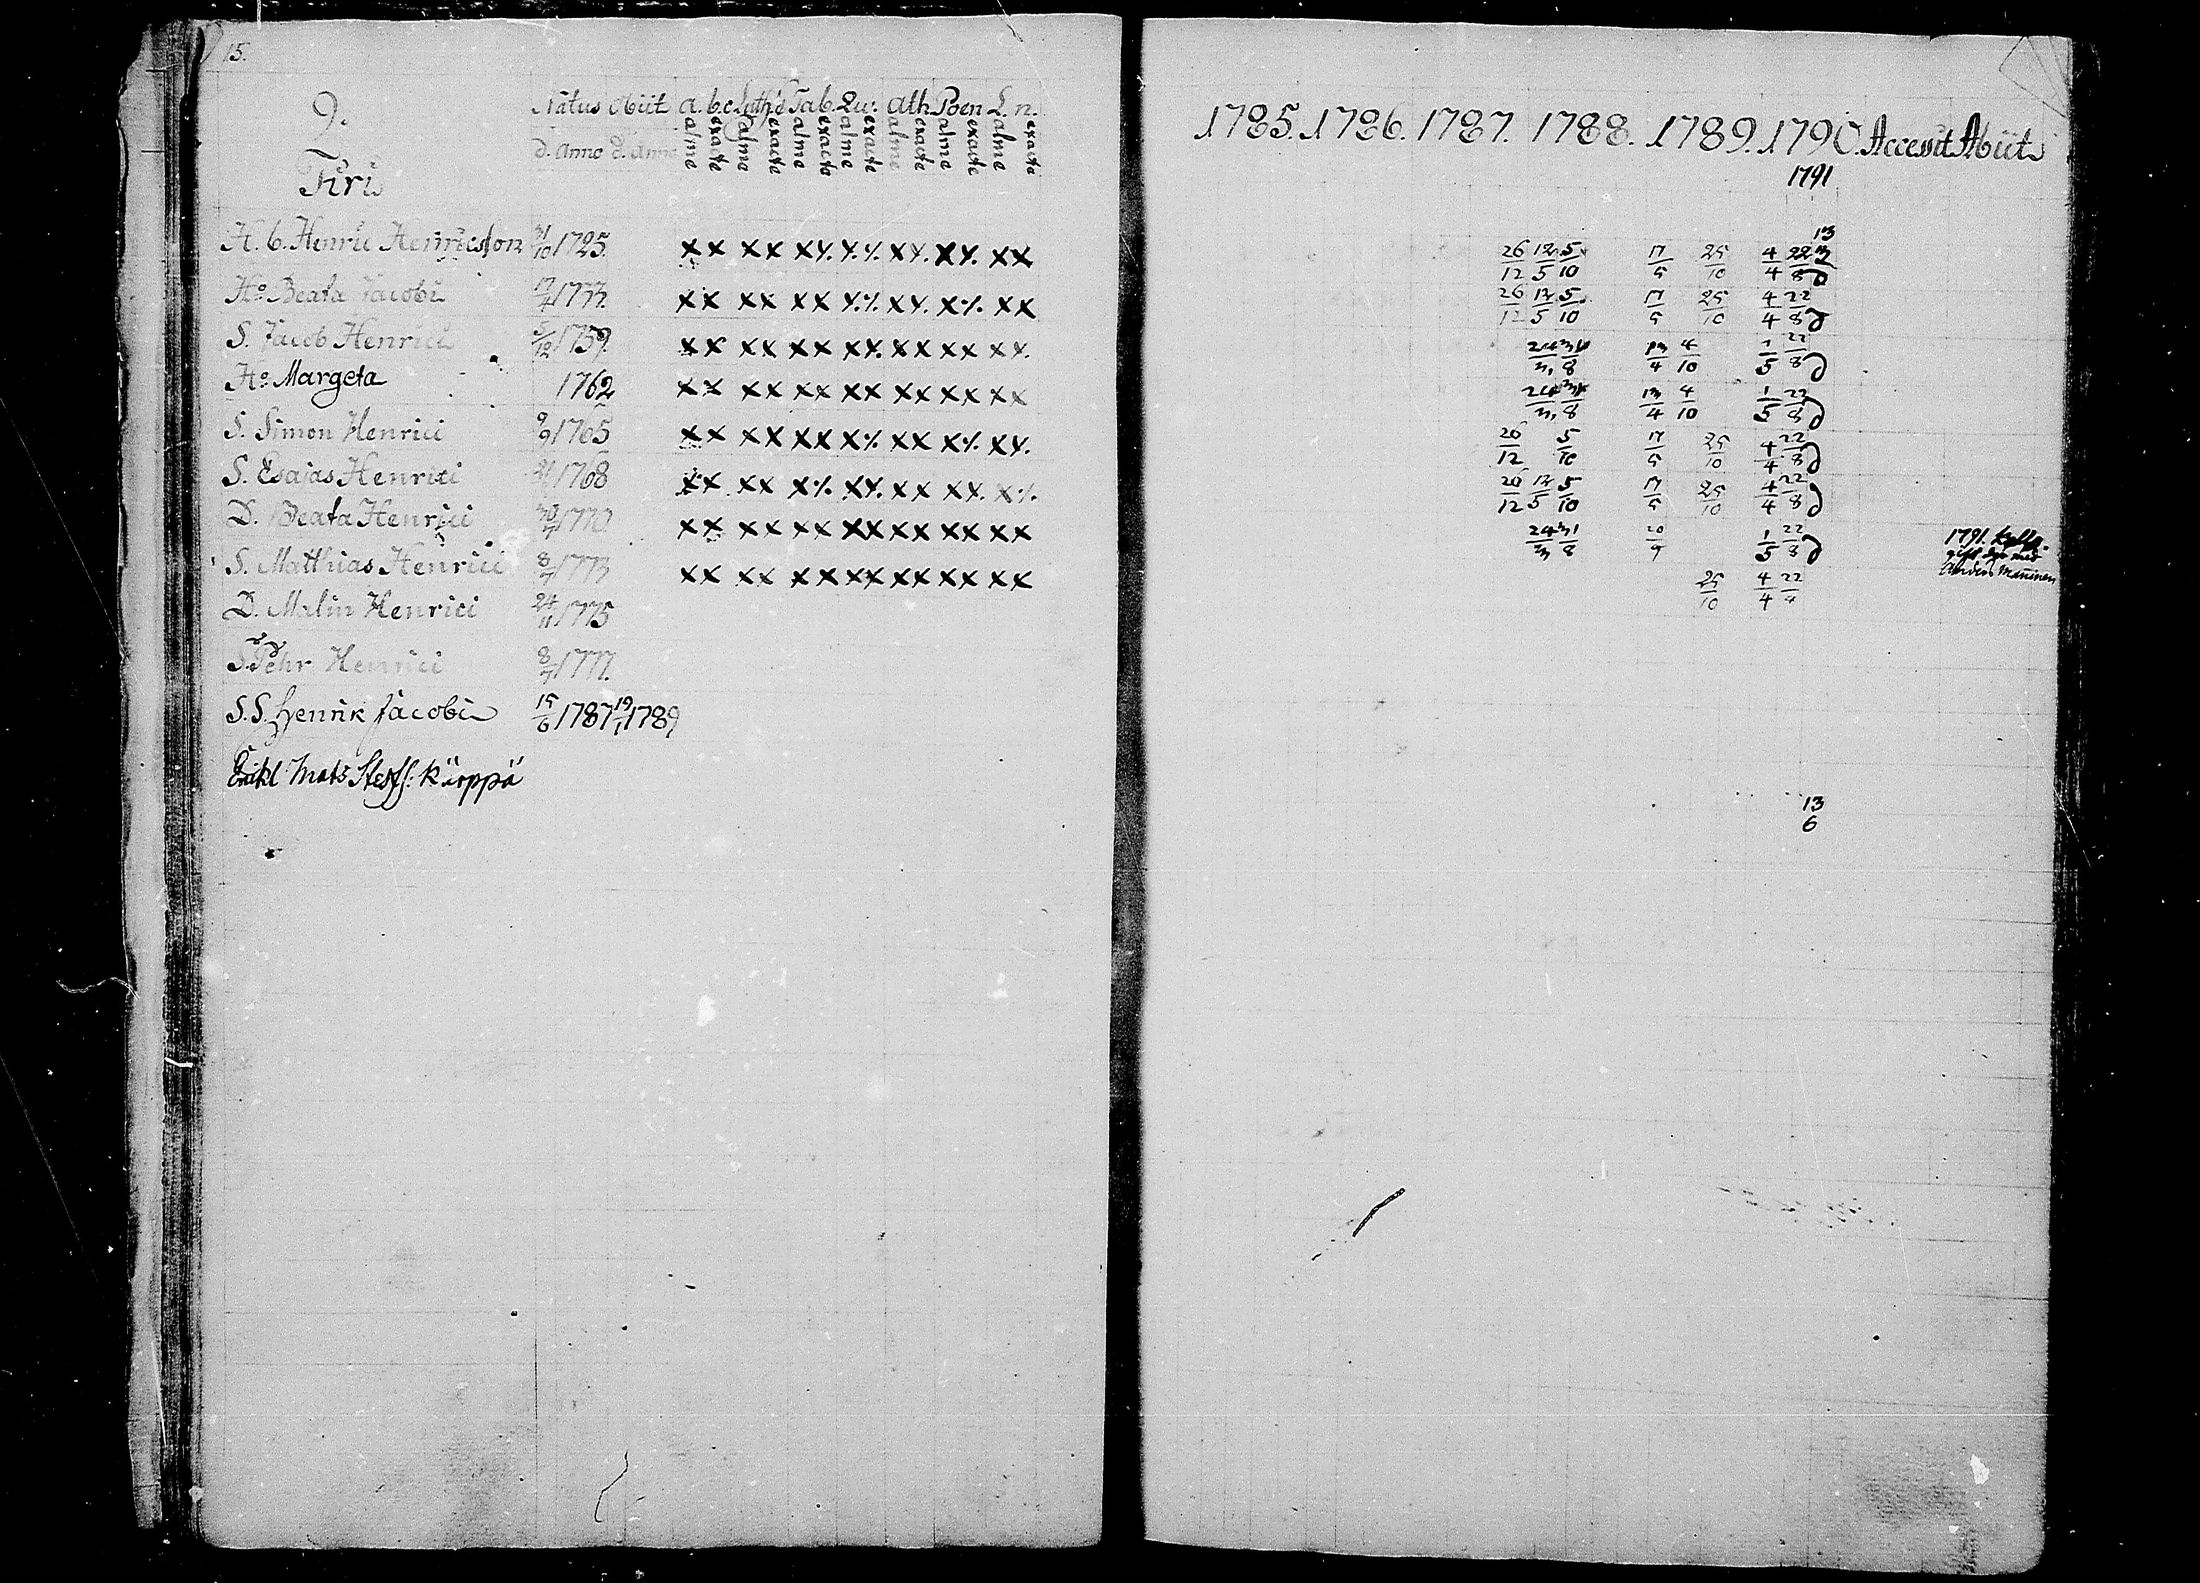 15.
9.
Natus Abiit a.b.c. Luth:s Tab. Qu: Ath. Poen L. n.
alme exacte alme exacte alme exacte alme exacte alme exacte alme exacte alme exacte
d. Anno d. Anno
Tiri
H. b. Henric Henricsson 21/10 1725. x x x x x ٪ ٪ ٪ x ٪ x ٪ x x
Ho Beata Jacobi 17/4 1733. x x x x x x ٪ ٪ x ٪ x ٪ x x
S. Jacob Henrici 5/12 1759. x x x x x x x ٪ x x x x x ٪
Ho Margeta 1762 x x x x x x x x x x x x x x
S. Simon Henrici 9/9 1765 x x x x x x x ٪ x x x ٪ x ٪
S. Esaias Henrici 1768 x x x x x ٪ x ٪ x x x ٪ x ٪
D. Beata Henrici 1770 x x x x x x x x x x x x x x
S. Matthias Henrici 8/7 1773 x x x x x x x x x x x x x x
D. Malin Henrici 24/11 1775
S. Pehr Henrici 8/7 1777.
S.S. Henrik Jacobi 15/6 1787 19/1 1789
Enkl Mats Staffs: Kärppä
1785. 1786. 1787. 1788. 1789. 1790. Accessit Abiit
1791
13
26/12 12/5 5/10 17/5 25/10 4/4 22/8
26/12 12/5 5/10 17/5 25/10 4/4 22/8
24/3 31/8 13/4 4/10 1/5 22/8
24/3 31/8 13/4 4/10 1/5 22/8
26/12 5/10 17/5 25/10 4/4 22/8
26/12 12/5 5/10 17/5 25/10 4/4 22/8
24/3 31/8 20/9 1/5 22/8 1791.
gift med
Anders Manninen
25/10 4/4 22/8
13
6